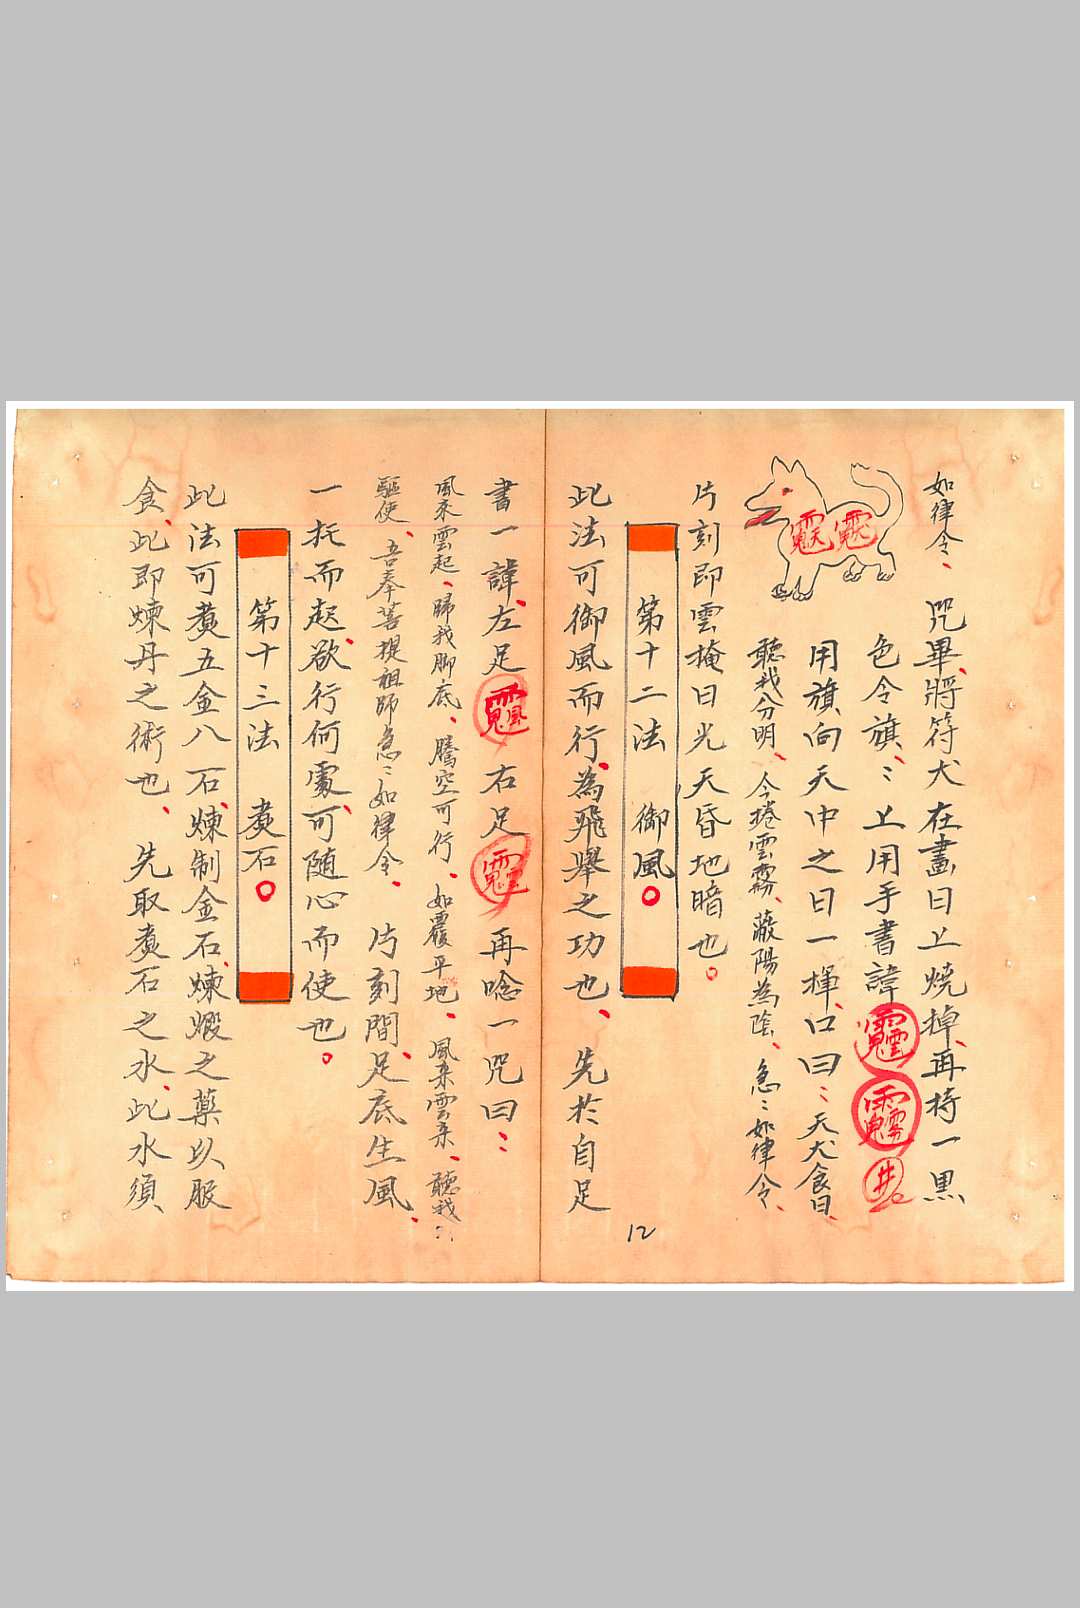 如律令、咒畢、將符犬在畫日上燒掉、再持一黑
色令旗、〻上用手書諱
用旗向天中之日一揮、口曰：天犬食日、
聽我分明、今捲雲霧、蔽陽為陰、急〻如律令、
片刻即雲掩日光天昏地暗也。
第十二法 御風。
此法可御風而行、為飛舉之功也、先於自足
12
書一諱、左足 右足 再唸一咒曰：
風來雲起、歸我腳底、騰空可行、如履平地、風來雲來、聽我
驅使、吾奉菩提祖師急〻如律令、片刻間、足底生風、
一托而起、欲行何處、可随心而使也。
第十三法 煑石。
此法可煑五金八石、煉制金石、煉煅之藥以服
食、此即煉丹之術也、先取煑石之水、此水須、